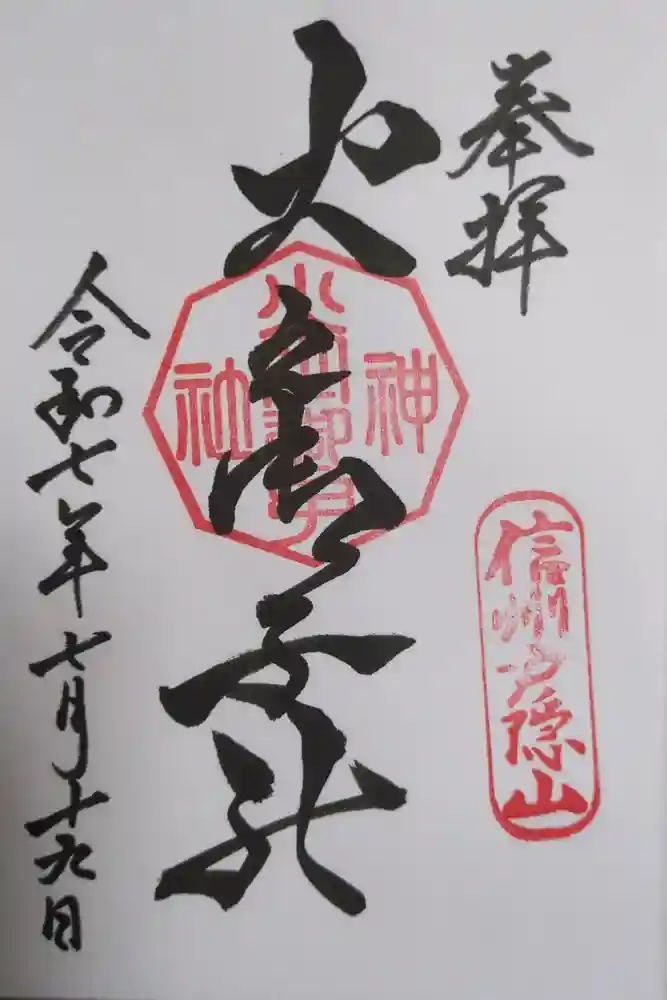 奉拝
信州戸隠山
火之御子社
火之御子
神社
令和七年七月十九日